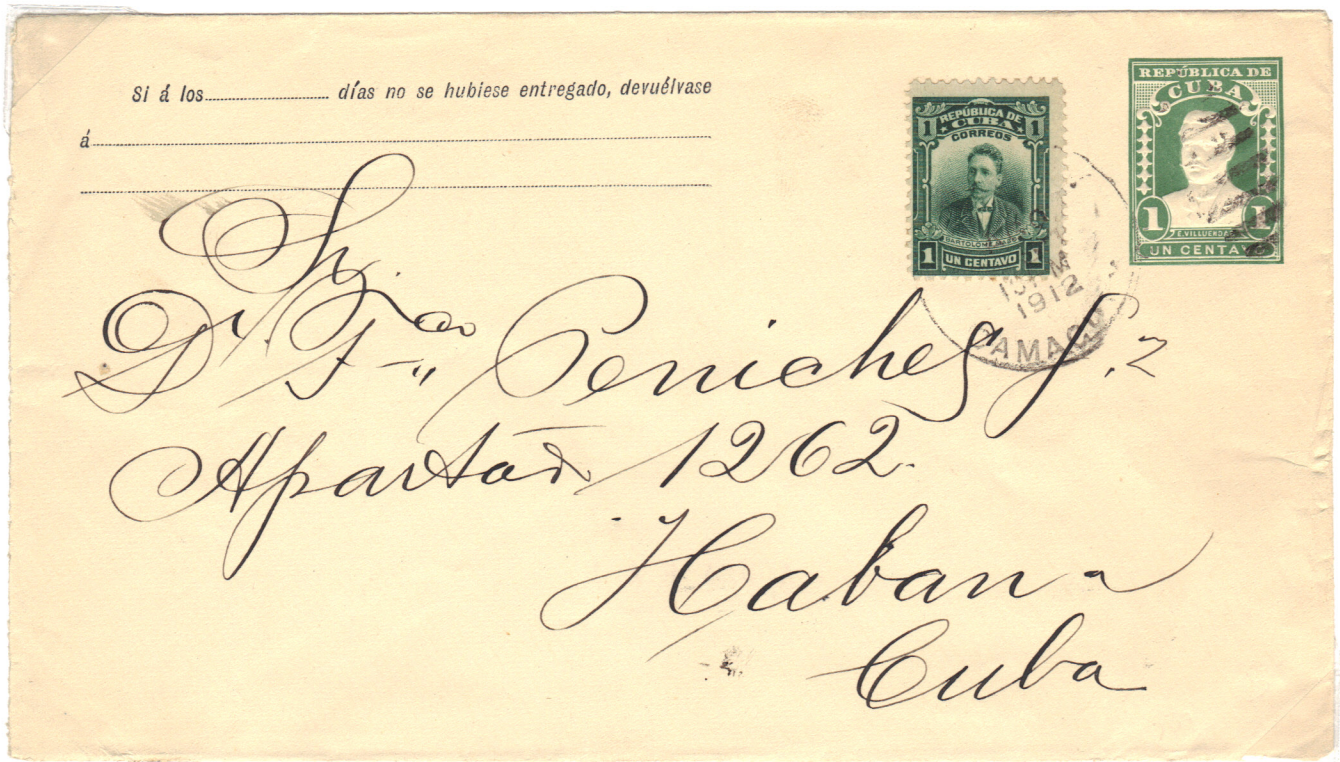 Si á los.................... días no se hubiese entregado, devuélvase
á
REPÚBLICA DE
CUBA
CORREOS
1 1
BARTOLOMÉ
1 UN CENTAVO 1
REPÚBLICA DE
CUBA
1 1
E. VILLUENDAS
UN CENTAVO
M
1912
CAMAGU
Sr.
Dr. F.co Peniche
Apartado 1262.
Habana
Cuba